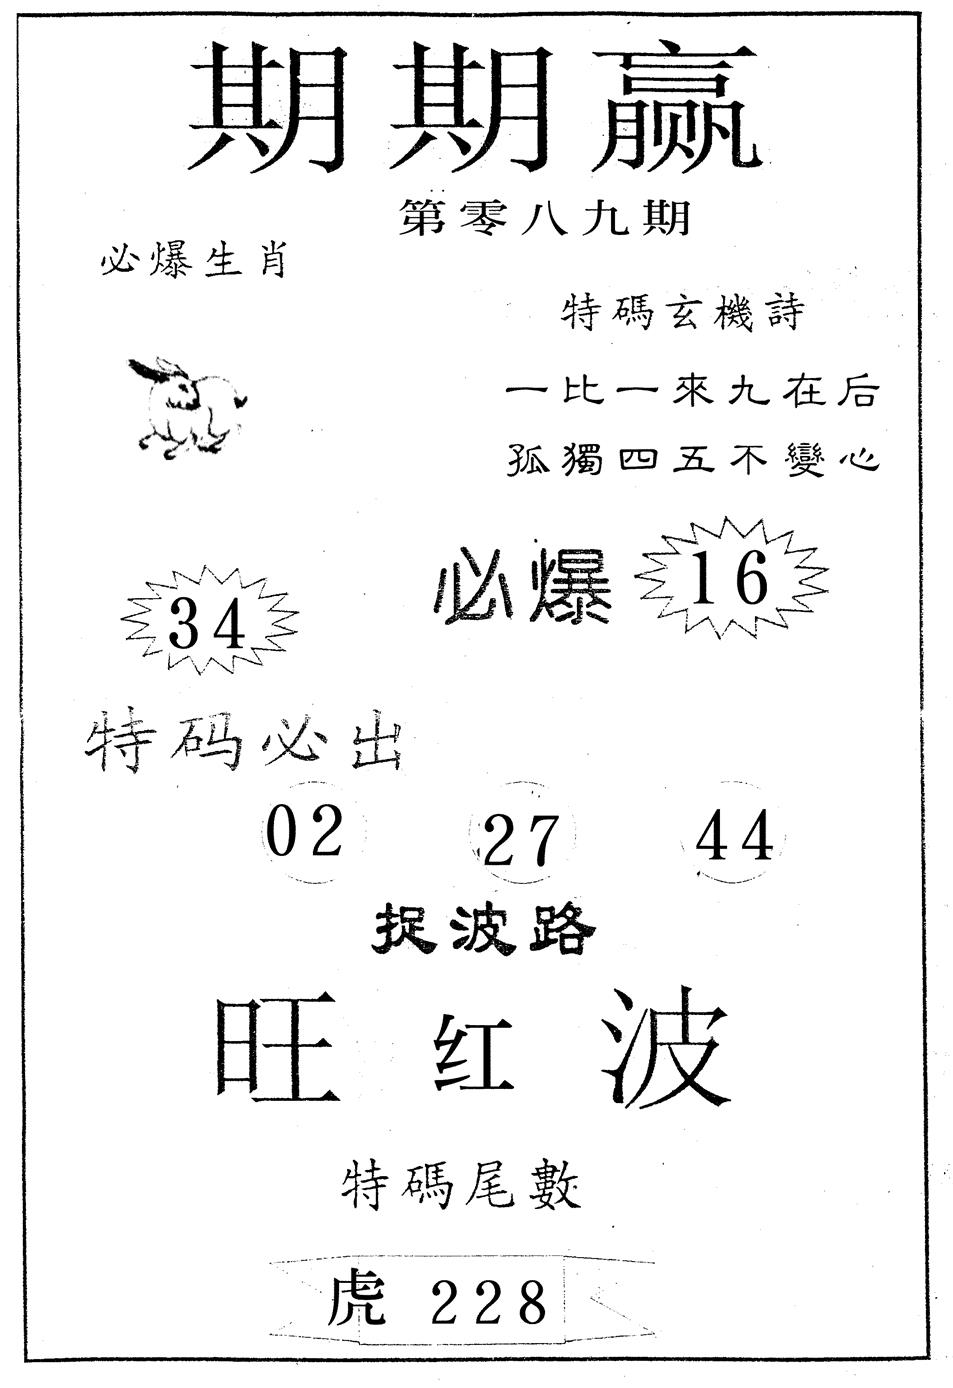 期期赢
第零八九期
必爆生肖
特碼玄機詩
一比一來九在后
孤獨四五不變心
必爆 16
34
特码必出
02 27 44
捉波路
旺红波
特碼尾數
虎 228